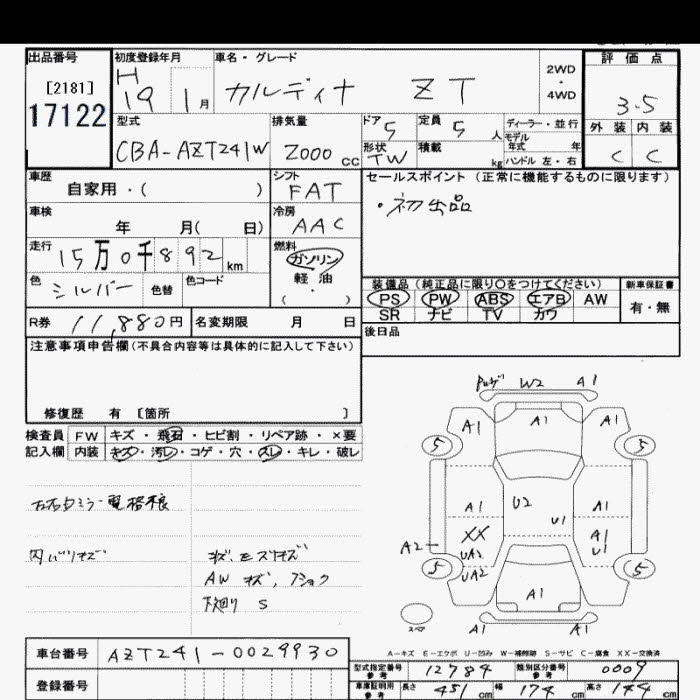 出品番号 初度登録年月 車名・グレード 評価点
[2181] H 2WD
17122 19 1月 カルディナ ZT ・ 3.5
4WD
型式 排気量 ドア 5 定員 5人 ディーラー・並行 外装 内装
モデル年式 年
CBA-AZT241W 2000cc 形状 TW 積載 kg ハンドル 左・右 C C
車歴 シフト セールスポイント (正常に機能するものに限ります)
自家用・( ) FAT ・初出品
車検 冷房
年 月( 日) AAC
走行 15万0千892km 燃料
ガソリン
色 シルバー 色替 色コード 軽油
( ・ )
装備品 (純正品に限り○をつけてください) 新車保証書
PS PW ABS エアB AW 有・無
SR ナビ TV カワ
R券 11,880円 名変期限 月 日 後日品
注意事項申告欄(不具合内容等は具体的に記入して下さい)
修復歴 有 [箇所 ]
検査員 FW キズ・飛石・ヒビ割・リペア跡・×要
記入欄 内装 キズ・汚レ・コゲ・穴・スレ・キレ・破レ
W2 A1
A1 A1 A1
5 5
A1 U2 U1 A1
XX A1
A2 UA2 U1
5 UA2 5
A1
スペア A1 A1
AW キズ,
下廻り S
A-キズ E-エクボ U-凹み W-補修跡 S-サビ C-腐食 XX-交換済
車台番号 AZT241-0029930
型式指定番号 参考 12784 類別区分番号 参考 0009
登録番号
車庫証明用 参考 長さ 451cm 幅 174cm 高さ 144cm